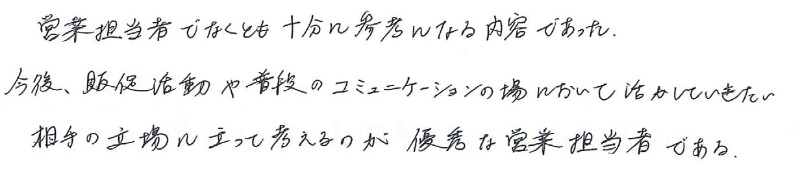 営業担当者でなくとも十分に参考になる内容であった.
今後、販促活動や普段のコミュニケーションの場において活かしていきたい
相手の立場に立って考えるのが優秀な営業担当者である.